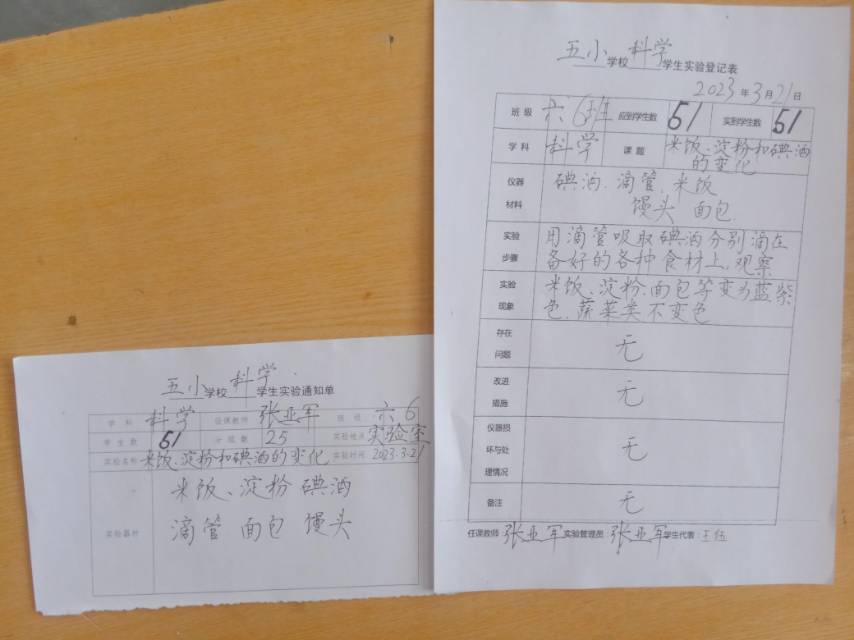 五小学校科学学生实验登记表
2023年3月21日
班级 六6班 应到学生数 51 实到学生数 51
学科 科学 课题 米饭、淀粉和碘酒
的变化
仪器 碘酒.滴管.米饭
材料 馒头 面包
实验 用滴管吸取碘酒分别滴在
步骤 备好的各种食材上,观察
实验 米饭、淀粉、面包等变为蓝紫
现象 色.蔬菜类不变色
存在
问题 无
改进
措施 无
仪器损
坏与处 无
理情况
备注 无
任课教师:张亚军实验管理员:张亚军学生代表:王伍
五小学校科学学生实验通知单
学科 科学 任课教师 张亚军 班级 六6
学生数 51 分组数 25 实验地点 实验室
实验名称 米饭、淀粉和碘酒的变化 实验时间 2023.3.21
米饭、淀粉 碘酒
实验器材 滴管 面包 馒头